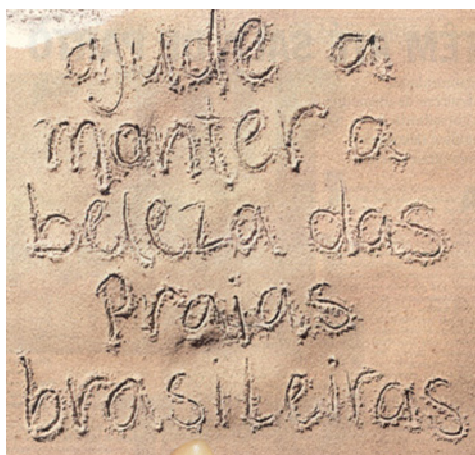 ajude a
manter a
beleza das
praias
brasileiras